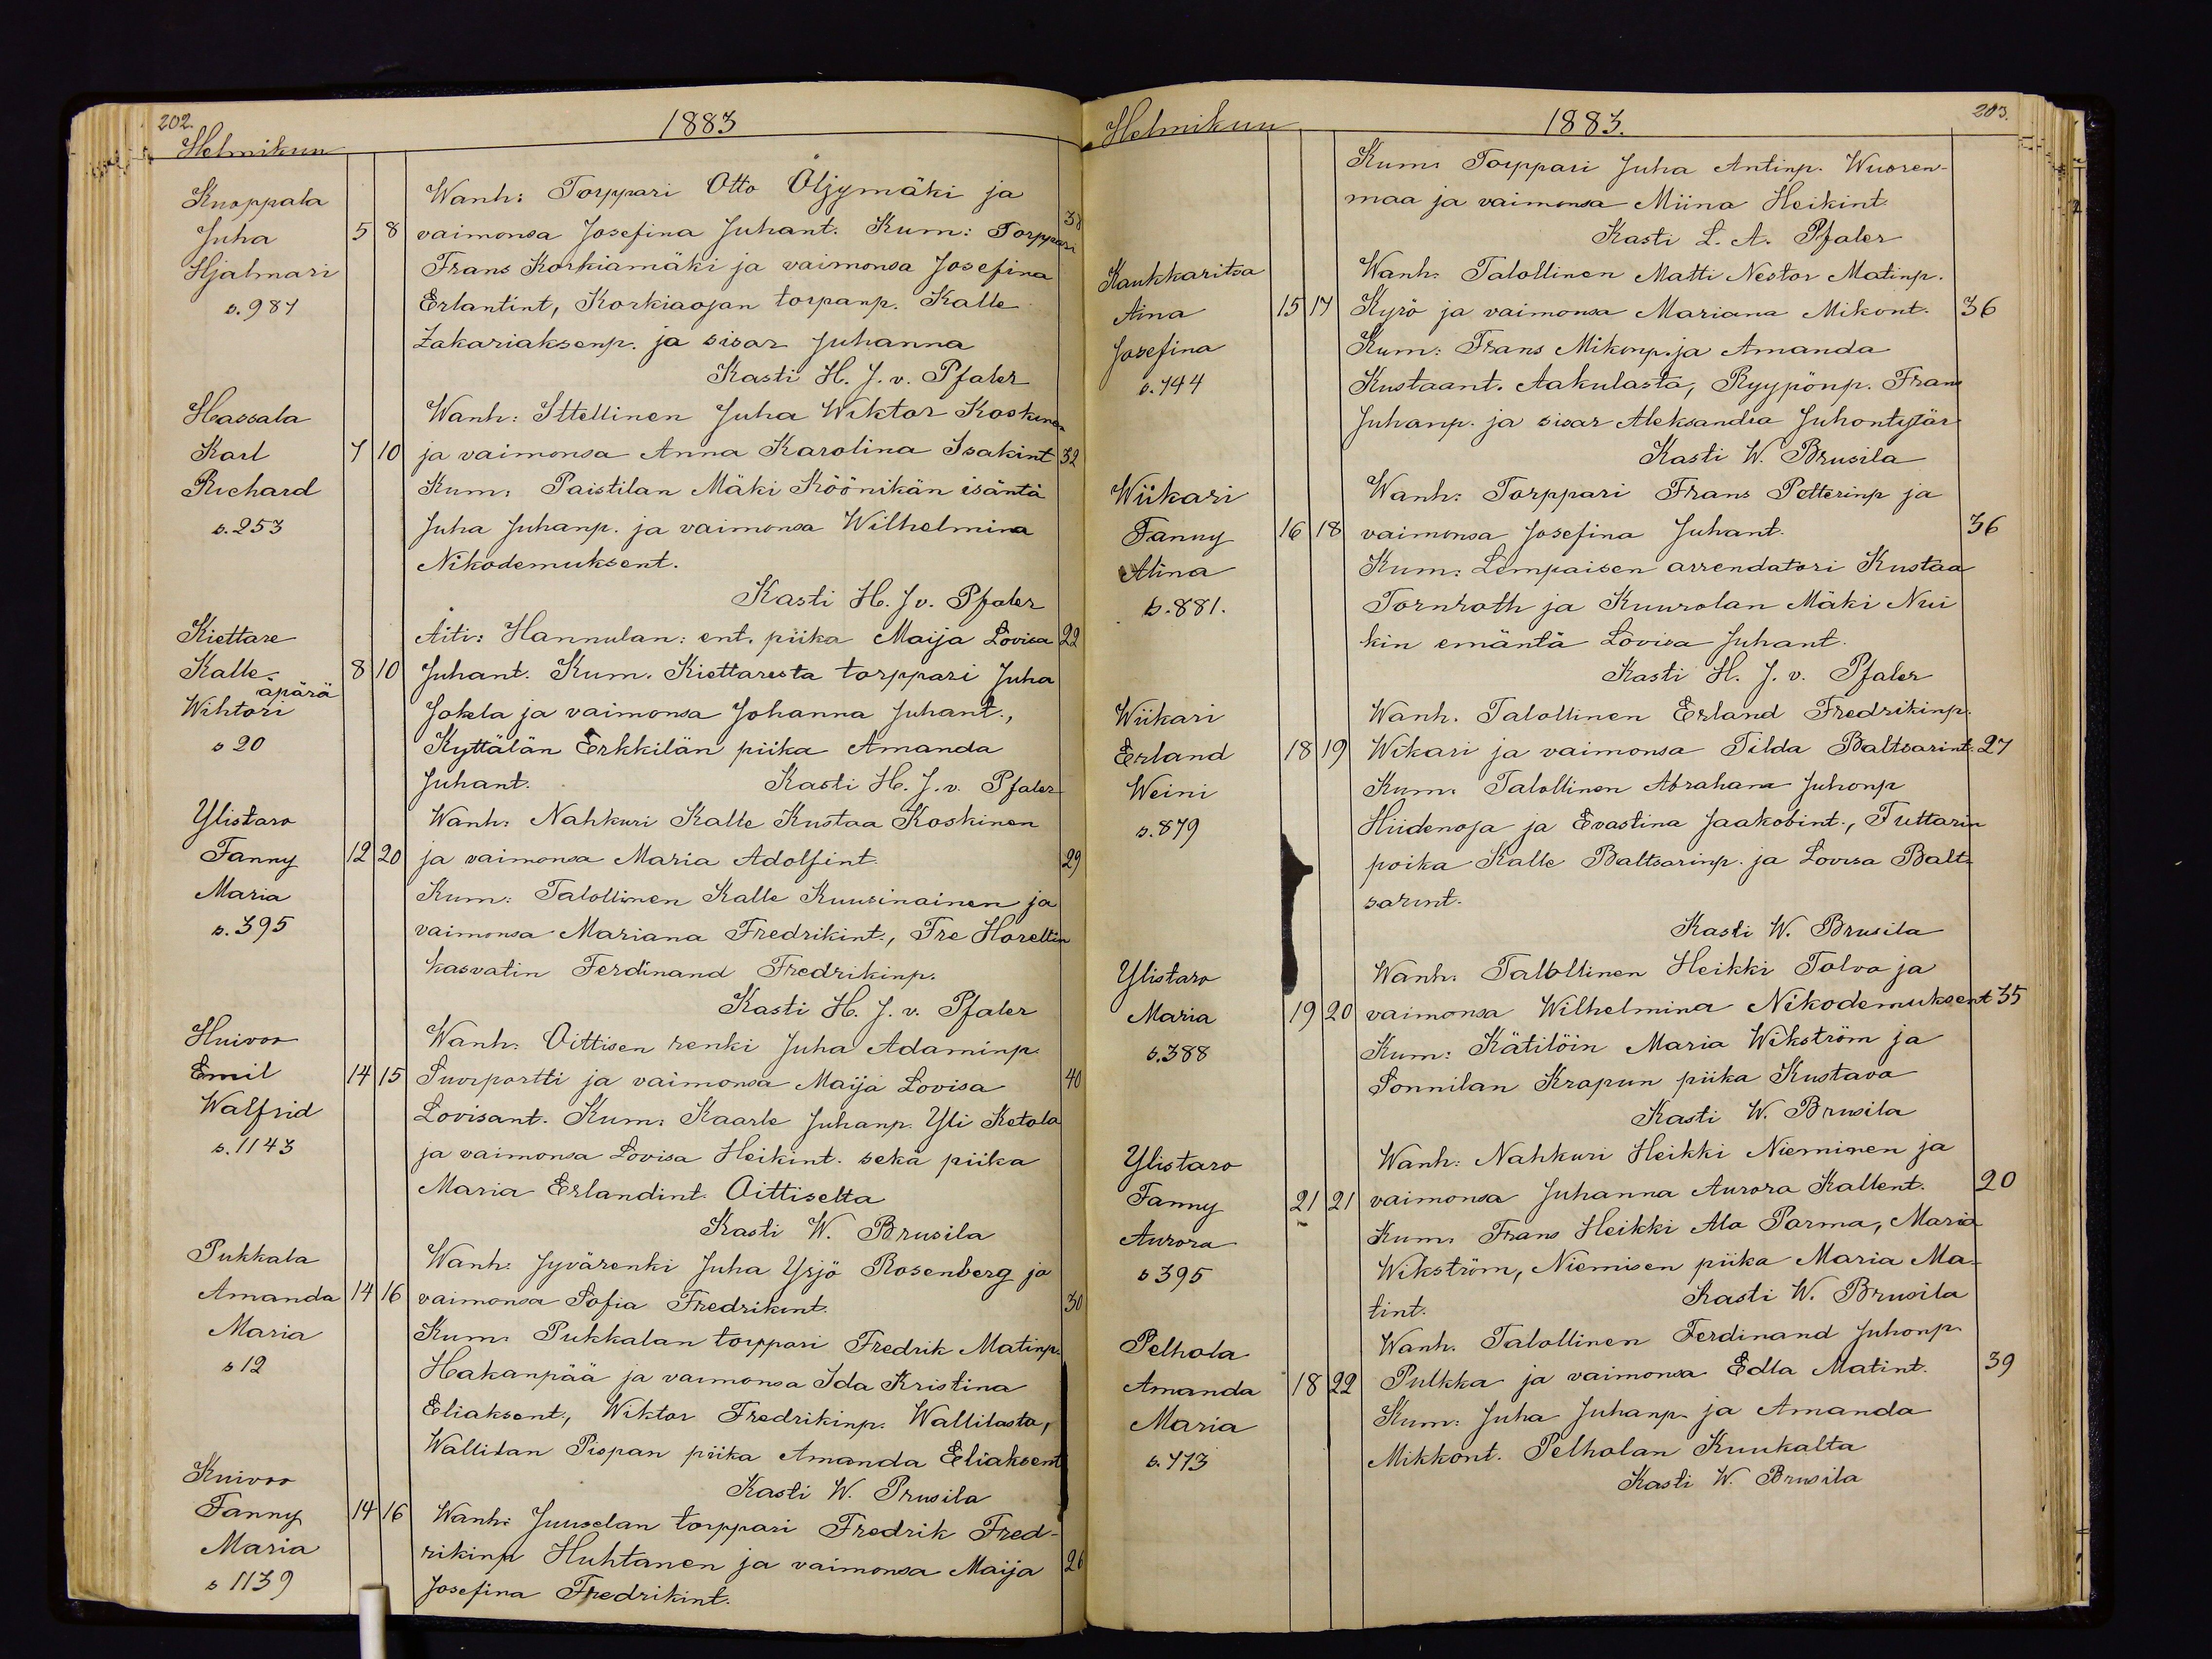 202.
1883
Helmikuu
Knoppala
Juha 5 8
Hjalmari
s. 987
Wanh: Torppari Otto Öljymäki ja
vaimonsa Josefina Juhant. Kum: Torppari 38
Frans Korkiamäki ja vaimonsa Josefina
Erlantint, Korkiaojan torpanp. Kalle
Zakariaksenp. ja sisar Juhanna
Kasti H. J. v. Pfaler
Hassala
Karl 7 10
Richard
s. 253
Wanh: Ittellinen Juha Wiktor Koskinen
ja vaimonsa Anna Karolina Isakint 32
Kum: Paistilan Mäki Köönikän isäntä
Juha Juhanp. ja vaimonsa Wilhelmina
Nikodemuksent.
Kasti H. J v. Pfaler
Kiettare
Kalle 8 10
äpärä
Wihtori
s 20
Äiti: Hannulan: ent. piika Maija Lovisa 22
Juhant. Kum. Kiettaresta torppari Juha
Jokela ja vaimonsa Johanna Juhant.,
Kyttälän Erkkilän piika Amanda
Juhant. Kasti H. J. v. Pfaler
Ylistaro
Fanny 12 20
Maria
s. 395
Wanh: Nahkuri Kalle Kustaa Koskinen
ja vaimonsa Maria Adolfint. 29
Kum: Talollinen Kalle Kuusinainen ja
vaimonsa Mariana Fredrikint., Fre Horellin
kasvatin Ferdinand Fredrikinp.
Kasti H. J. v. Pfaler
Huivoo
Emil 14 15
Walfrid
s. 1143
Wanh: Oittisen renki Juha Adaminp.
Suorportti ja vaimonsa Maija Lovisa 40
Lovisant. Kum: Kaarle Juhanp. Yli Ketola
ja vaimonsa Lovisa Heikint. sekä piika
Maria Erlandint. Oittiselta
Kasti W. Brusila
Pukkala
Amanda 14 16
Maria
s 12
Wanh: Jyvärenki Juha Yrjö Rosenberg ja
vaimonsa Sofia Fredrikint. 30
Kum: Pukkalan torppari Fredrik Matinp.
Hakanpää ja vaimonsa Ida Kristina
Eliaksent., Wiktor Fredrikinp. Wallilasta,
Wallilan Pispan piika Amanda Eliaksent
Kasti W. Prusila
Kuivoo
Fanny 14 16
Maria
s 1139
Wanh: Juuselan torppari Fredrik Fred-
rikinp Huhtanen ja vaimonsa Maija 26
Josefina Fredrikint.
Helmikuu
1883.
203.
Kum: Torppari Juha Antinp. Wuoren-
maa ja vaimonsa Miina Heikint.
Kasti L. A. Pfaler
Kaukkaritsa
Aina 15 17
Josefina
s. 744
Wanh: Talollinen Matti Nestor Matinp.
Kyrö ja vaimonsa Mariana Mikont. 36
Kum: Frans Mikonp. ja Amanda
Kustaant. Aakulasta, Ryypönp. Frans
Juhanp. ja sisar Aleksandra Juhontytär
Kasti W. Brusila
Wiikari
Fanny 16 18
Alina
s. 881.
Wanh: Torppari Frans Petterinp ja
vaimonsa Josefina Juhant. 36
Kum: Lempaisen arrendatori Kustaa
Tornroth ja Kuurolan Mäki Nui
kin emäntä Lovisa Juhant.
Kasti H. J. v. Pfaler
Wiikari
Erland 18 19
Weini
s. 879
Wanh. Talollinen Erland Fredrikinp.
Wikari ja vaimonsa Tilda Baltsarint. 27
Kum: Talollinen Abraham Juhonp
Hiidenoja ja Evastina Jaakobint., Tuttarin
poika Kalle Baltsarinp. ja Lovisa Balt-
sarint.
Kasti W. Brusila
Ylistaro
Maria 19 20
s. 388
Wanh: Talollinen Heikki Tolvo ja
vaimonsa Wilhelmina Nikodemuksent 35
Kum: Kätilöin Maria Wikström ja
Sonnilan Krapun piika Kustava
Kasti W. Brusila
Ylistaro
Fanny 21 21
Aurora
s 395
Wanh: Nahkuri Heikki Nieminen ja
vaimonsa Juhanna Aurora Kallent. 20
Kum: Frans Heikki Ala Parma, Maria
Wikström, Niemisen piika Maria Ma-
tint. Kasti W. Brusila
Pelhola
Amanda 18 22
Maria
s. 773
Wanh. Talollinen Ferdinand Juhonp.
Pulkka ja vaimonsa Edla Matint. 39
Kum: Juha Juhanp ja Amanda
Mikkont. Pelholan Kuukalta
Kasti W. Brusila